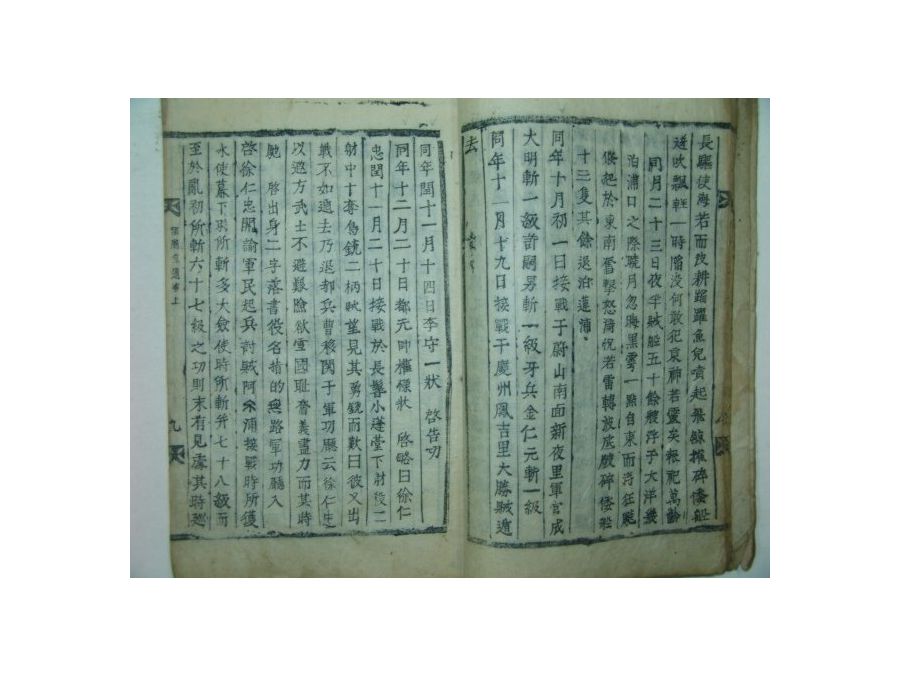 長驅使海若而攻耕踏躍魚兒噴起飛鯨摧碎倭船
逆吹飄輕一時陷沒何敢犯哀神若靈矣報祀萬齡
同月二十三日夜半賊船五十餘艘浮于大洋幾
泊浦口之際曉月忽海黑雲一點自東而漲狂颷
倏起於東南奮擊怒濤況若雷轉放底殿碎倭船
十三隻其餘退泊蓮浦
同年十月初一日接戰于蔚山南面新夜里軍官成
大明斬一級許嗣男斬一級牙兵金仁元斬一級
同年十一月十九日接戰于慶州鳳吉里大勝賊遁
去
同年閏十一月十四日李守一狀 啓告功
同年十二月二十日都元帥權慄狀 啓略曰徐仁
忠閏十一月二十日接戰於長鬐小蓬臺下射殺二
射中十奪鳥銃二柄賊望見其勇銳而歎曰彼又出
戰不如遁去乃退却兵曹移関于軍功廳云徐仁忠
以遐方武士不避艱險欲雪國耻奮義盡力而其時
 啓出身二字落書役名措的無路軍功廳入
啓徐仁忠開諭軍民起兵討賊阿尒浦接戰時所獲
水使幕下現所斬多大僉使時所斬并七十八級而
至於亂初所斬六十七級之功則未有見處其時巡
九